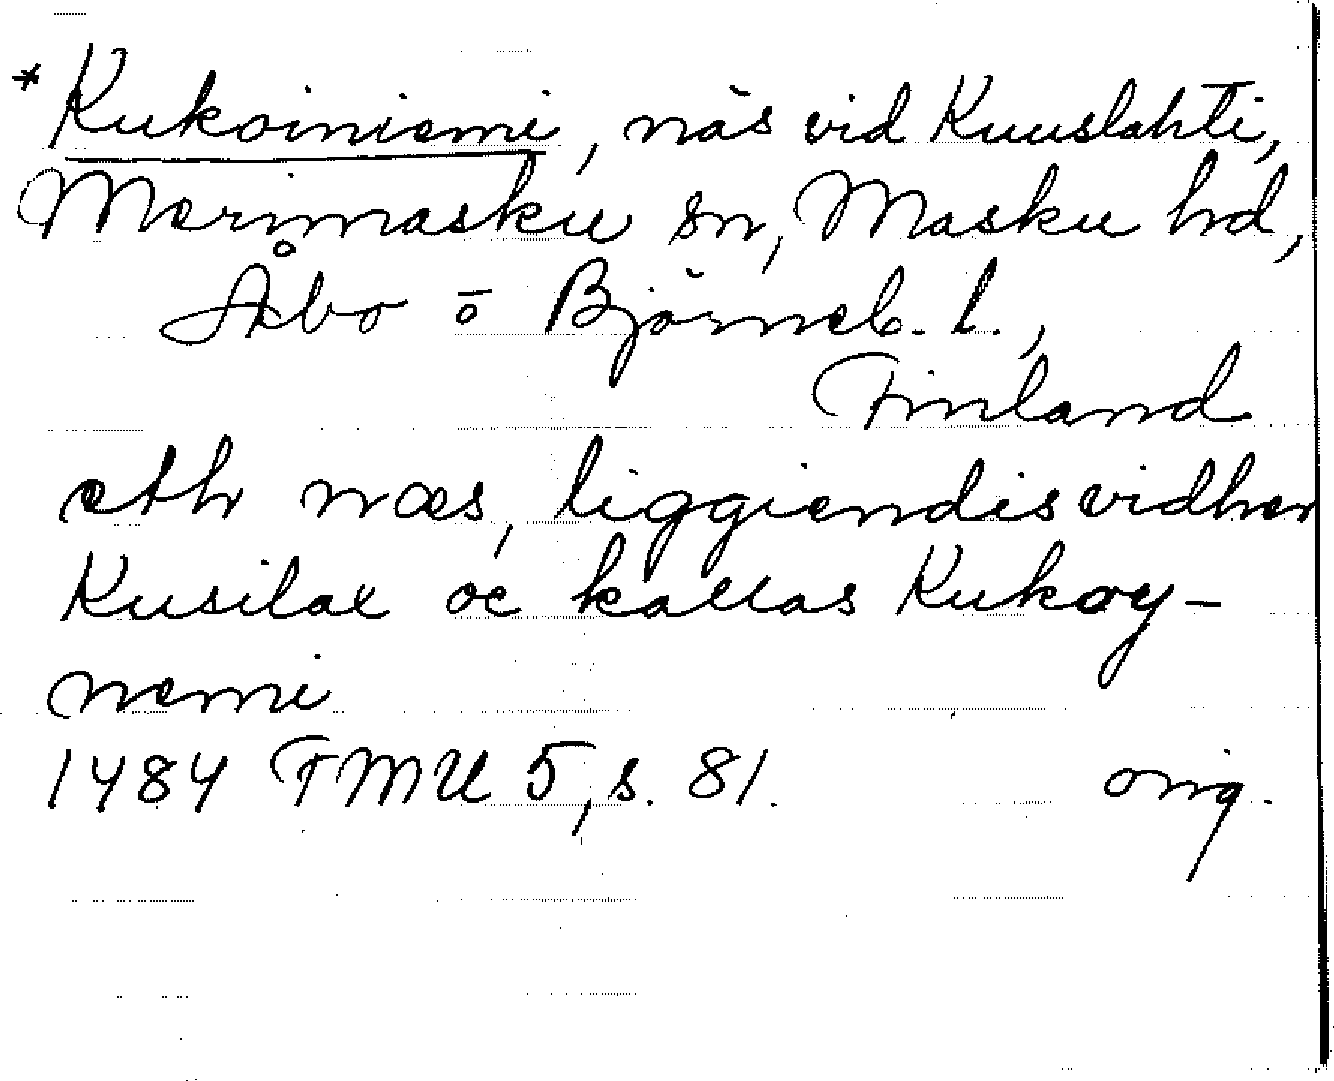 * Kukoiniemi, näs vid Kuuslahti,
Merimasku sn, Masku hd,
Åbo o Björneb. l.,
Finland
eth næs, liggiendis vidher
Kusilax oc kallas Kukoy-
nemi
1484 FMU 5, s. 81. orig.